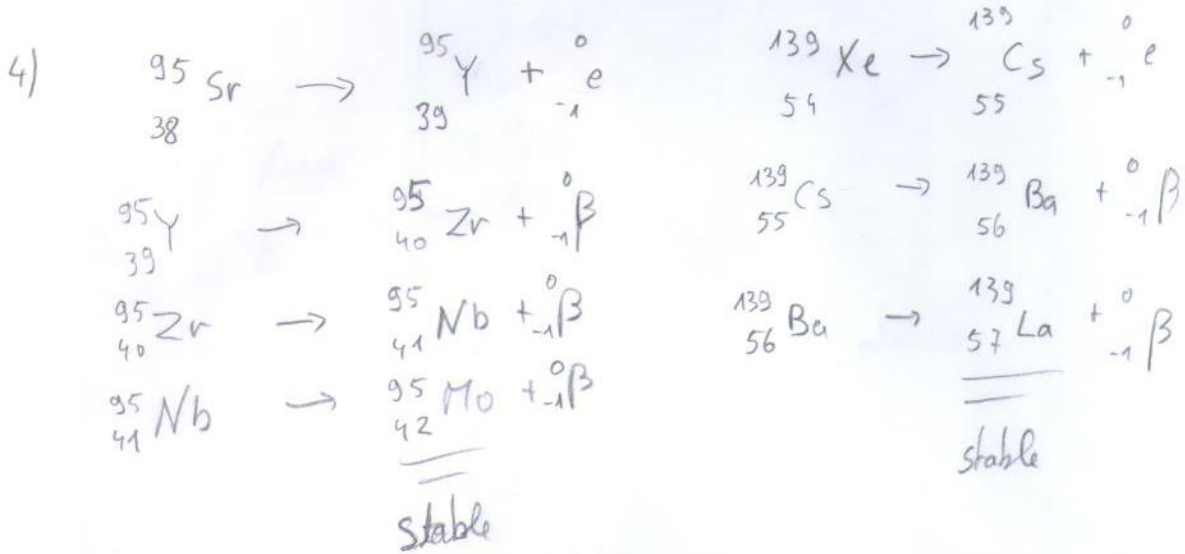 4) ⁹⁵₃₈Sr → ⁹⁵₃₉Y + ⁰₋₁e
⁹⁵₃₉Y → ⁹⁵₄₀Zr + ⁰₋₁β
⁹⁵₄₀Zr → ⁹⁵₄₁Nb + ⁰₋₁β
⁹⁵₄₁Nb → ⁹⁵₄₂Mo + ⁰₋₁β
stable
¹³⁹₅₄Xe → ¹³⁹₅₅Cs + ⁰₋₁e
¹³⁹₅₅Cs → ¹³⁹₅₆Ba + ⁰₋₁β
¹³⁹₅₆Ba → ¹³⁹₅₇La + ⁰₋₁β
stable